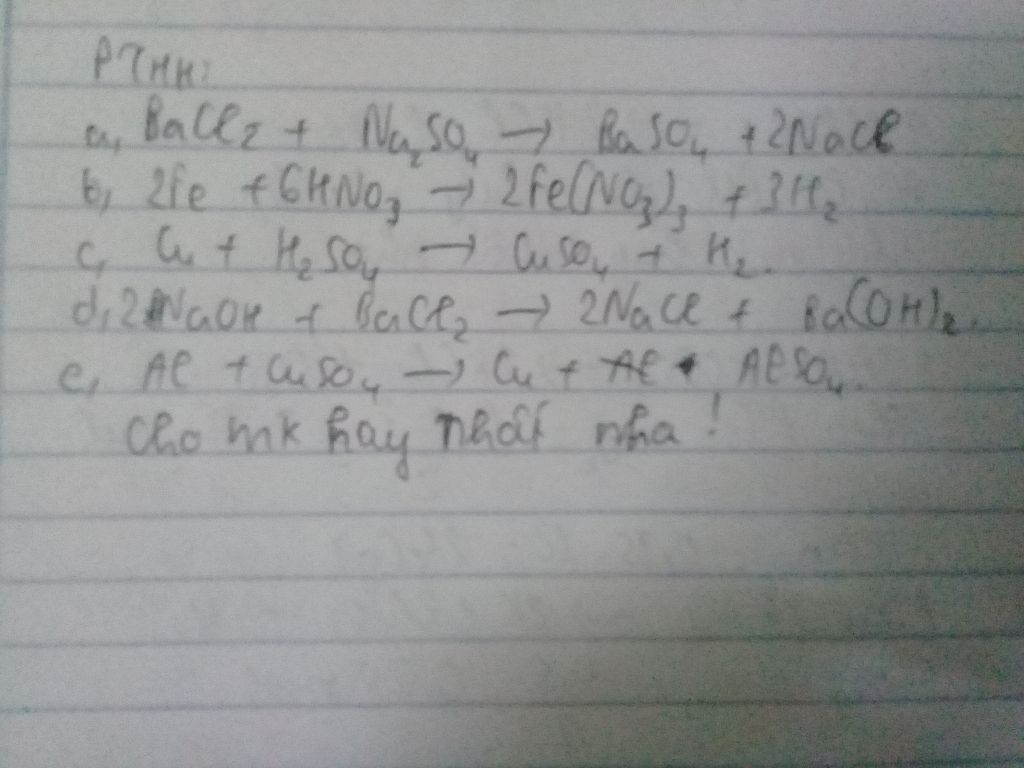 PTHH:
a, BaCl2 + Na2SO4 → BaSO4 + 2NaCl
b, 2Fe + 6HNO3 → 2Fe(NO3)3 + 3H2
c, Cu + H2SO4 → CuSO4 + H2.
d, 2NaOH + BaCl2 → 2NaCl + Ba(OH)2.
e, Al + CuSO4 → Cu + AlSO4.
Cho mk hay nhất nha!